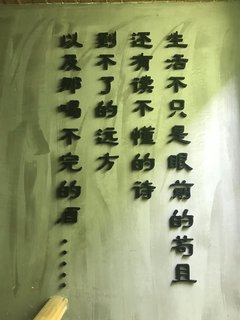 生活不只是眼前的苟且
还有读不懂的诗
到不了的远方
以及那喝不完的酒······